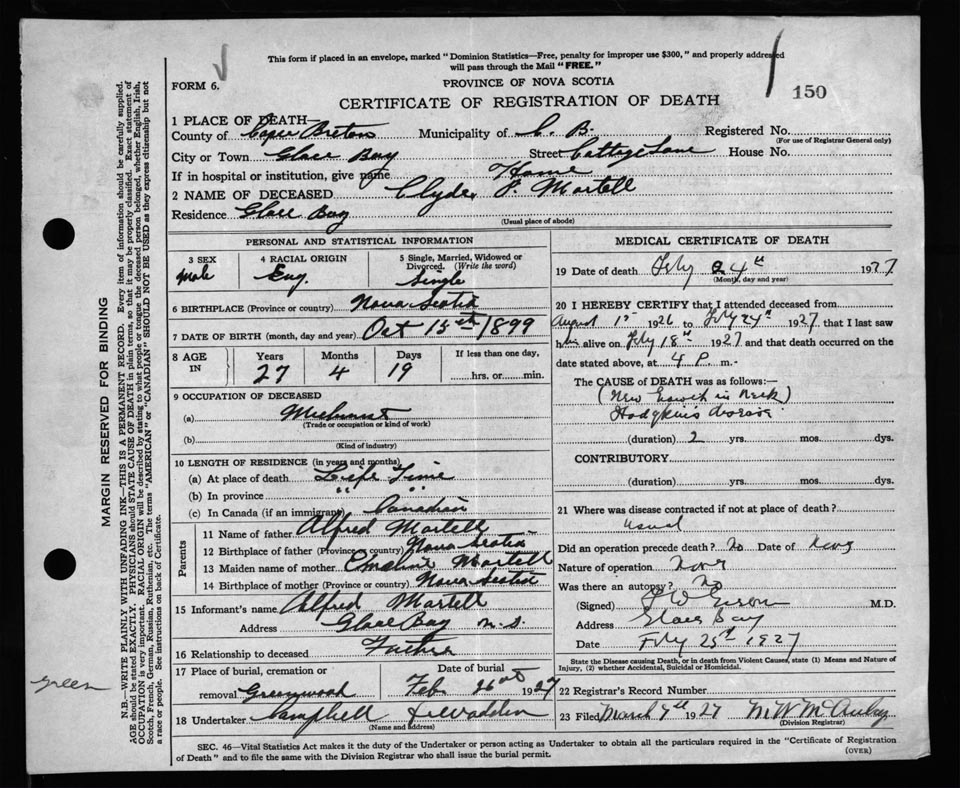 This form if placed in an envelope, marked "Dominion Statistics—Free, penalty for improper use $300," and properly addressed
will pass through the Mail "FREE."
FORM 6.
PROVINCE OF NOVA SCOTIA
CERTIFICATE OF REGISTRATION OF DEATH
150
1 PLACE OF DEATH—
County of Cape Breton Municipality of C. B. Registered No.
(For use of Registrar General only)
City or Town Glace Bay Street Cottage Lane House No.
If in hospital or institution, give name Home
2 NAME OF DECEASED Clyde F. Martell
Residence Glace Bay
(Usual place of abode)
PERSONAL AND STATISTICAL INFORMATION
3 SEX 4 RACIAL ORIGIN 5 Single, Married, Widowed or
Divorced. (Write the word)
Male Eng. Single
6 BIRTHPLACE (Province or country) Nova Scotia
7 DATE OF BIRTH (month, day and year) Oct 15th 1899
8 AGE IN Years Months Days If less than one day,
27 4 19 hrs. or min.
9 OCCUPATION OF DECEASED
(a)
(Trade or occupation or kind of work)
(b)
(Kind of industry)
10 LENGTH OF RESIDENCE (in years and months)
(a) At place of death Life Time
(b) In province " "
(c) In Canada (if an immigrant) Canadian
Parents
11 Name of father Alfred Martell
12 Birthplace of father (Province or country) Nova Scotia
13 Maiden name of mother Emeline Martell
14 Birthplace of mother (Province or country) Nova Scotia
15 Informant's name Alfred Martell
Address Glace Bay N.S.
16 Relationship to deceased Father
17 Place of burial, cremation or Date of burial
removal Greenwood Feb. 26th 1927
18 Undertaker Campbell & Wadden
(Name and address)
MEDICAL CERTIFICATE OF DEATH
19 Date of death Feby 24th 1927
(Month, day and year)
20 I HEREBY CERTIFY that I attended deceased from
August 1st 1926 to Feby 24th 1927, that I last saw
him alive on Feby 18th 1927 and that death occurred on the
date stated above, at 4 P. m.
The CAUSE OF DEATH was as follows:—
(New Growth in Neck)
Hodgkin's disease
(duration) 2 yrs. mos. dys.
CONTRIBUTORY
(duration) yrs. mos. dys.
21 Where was disease contracted if not at place of death?
usual
Did an operation precede death? No Date of none
Nature of operation none
Was there an autopsy? No
(Signed) M.D.
Address Glace Bay
Date Feby 25th 1927
State the Disease causing Death, or in death from Violent Causes, state (1) Means and Nature of
Injury, (2) whether Accidental, Suicidal or Homicidal.
22 Registrar's Record Number
23 Filed March 7th 1927
(Division Registrar)
SEC. 46—Vital Statistics Act makes it the duty of the Undertaker or person acting as Undertaker to obtain all the particulars required in the "Certificate of Registration
of Death" and to file the same with the Division Registrar who shall issue the burial permit.
(OVER)
MARGIN RESERVED FOR BINDING
N.B.—WRITE PLAINLY WITH UNFADING INK—THIS IS A PERMANENT RECORD. Every item of information should be carefully supplied.
AGE should be stated EXACTLY. PHYSICIANS should STATE CAUSE OF DEATH in plain terms, so that it may be properly classified. Exact statement of
OCCUPATION is very important. RACIAL ORIGIN will be described by stating to what people or tongue the deceased person belonged, whether English, Irish,
Scotch, French, German, Russian, Ruthenian, etc. The terms "AMERICAN" or "CANADIAN" SHOULD NOT BE USED as they express citizenship but not
a race or people. See instructions on back of Certificate.
green